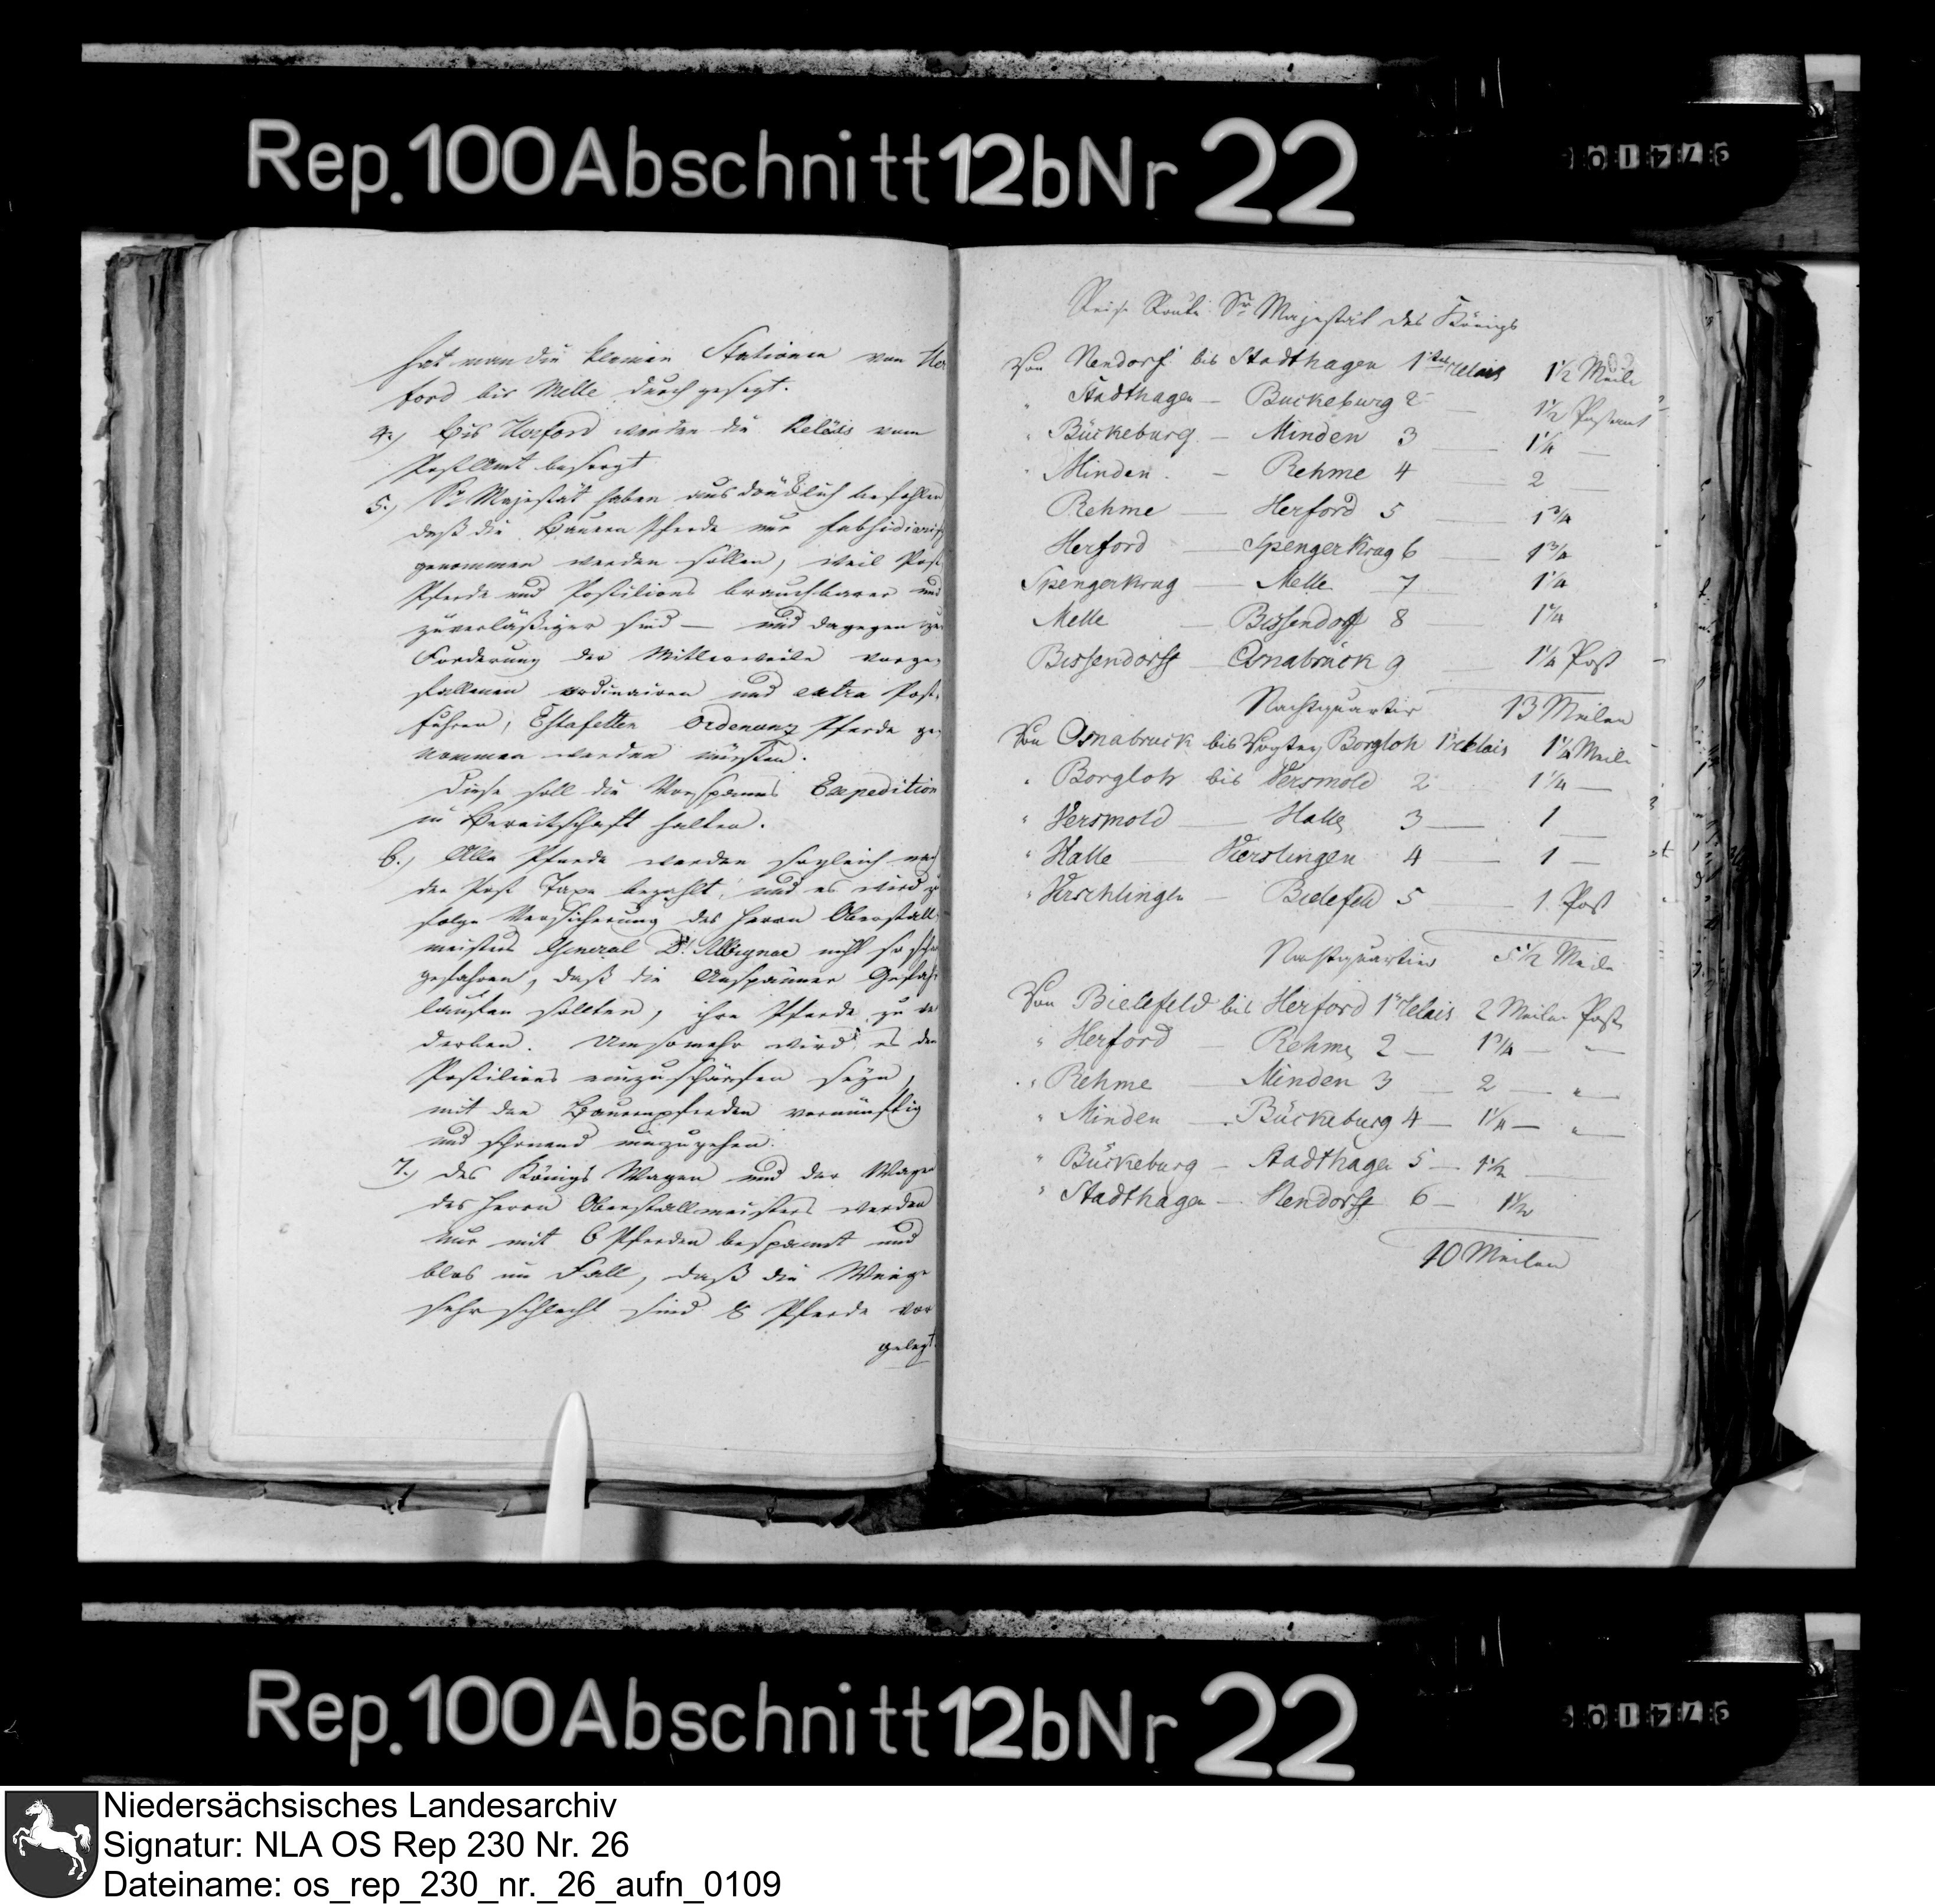 Rep. 100 Abschnitt 12b Nr 22
hat man die kleinen Stationen von Her
ford bis Melle durch gesezt.
4.) Bis Herford werden die Relais vom
PostAmt besorgt
5.) Sr Majestät haben ausdrücklich befohlen
daß die Bauern Pferde nur subsidiarisch
genommen werden sollen, weil Post
Pferde und Postilions brauchbarer und
zuverläßiger sind — und dagegen zur
Forderung der Mitlerweile vorge-
fallenen ordinairen und extra Post-
fuhren, Estafetten Ordenanz Pferde ge-
nommen werden müsten.
Diese soll die Vorspanns Expedition
in Bereitschaft halten.
6.) Alle Pferde werden sogleich nach
der Post Taxe bezahlt, und es wird zu
folge Versicherung des Herrn Oberstall-
meisters General D'Albignac nicht so
gefahren, daß die Anspänner Gefahr
laufen sollten, ihre Pferde zu ver
derben. Umsomehr wird es den
Postilions einzuschärfen seyn,
mit den Bauernpferden vernünftig
und schonend umzugehen.
7.) Des Königs Wagen und der Wagen
des Herrn Oberstallmeisters werden
nur mit 6 Pferden bespannt und
blos im Fall, daß die Weege
sehr schlecht sind 8 Pferde vor
gelegt
Reise Route Sr Majestät des Königs
Von Nendorf bis Stadthagen 1stes Relais 1½ Meile
" Stadthagen — Buckeburg 2 — 1½ Postamt
" Bückeburg — Minden 3 — 1¼ —
" Minden — Rehme 4 2 —
Rehme — Herford 5 — 1¾
Herford — Spenger Krug 6 — 1¾
Spengerkrug — Melle 7 — 1¼
Melle — Bissendorf 8 — 1¼
Bissendorff — Osnabrück 9 — 1¼ Post
Nachtquartier 13 Meilen
Von Osnabruck bis Vogtey Borgloh 1 relais 1¼ Meile
" Borgloh bis Versmold 2 1¼ —
" Versmold — Halle 3 — 1 —
" Halle — Werstingen 4 — 1 —
" Werschlingen — Bielefeld 5 — 1 Post
Nachtquartier 5½ Meile
Von Bielefeld bis Herford 1s relais 2 Meilen Post
" Herford — Rehme 2 — 1¾ — "
" Rehme — Minden 3 — 2 — "
" Minden — Bückeburg 4 — 1¼ — "
" Bückeburg — Stadthagen 5 — 1½ —
" Stadthagen — Nendorff 6 — 1½
10 Meilen
Rep. 100 Abschnitt 12b Nr 22
Niedersächsisches Landesarchiv
Signatur: NLA OS Rep 230 Nr. 26
Dateiname: os_rep_230_nr._26_aufn_0109